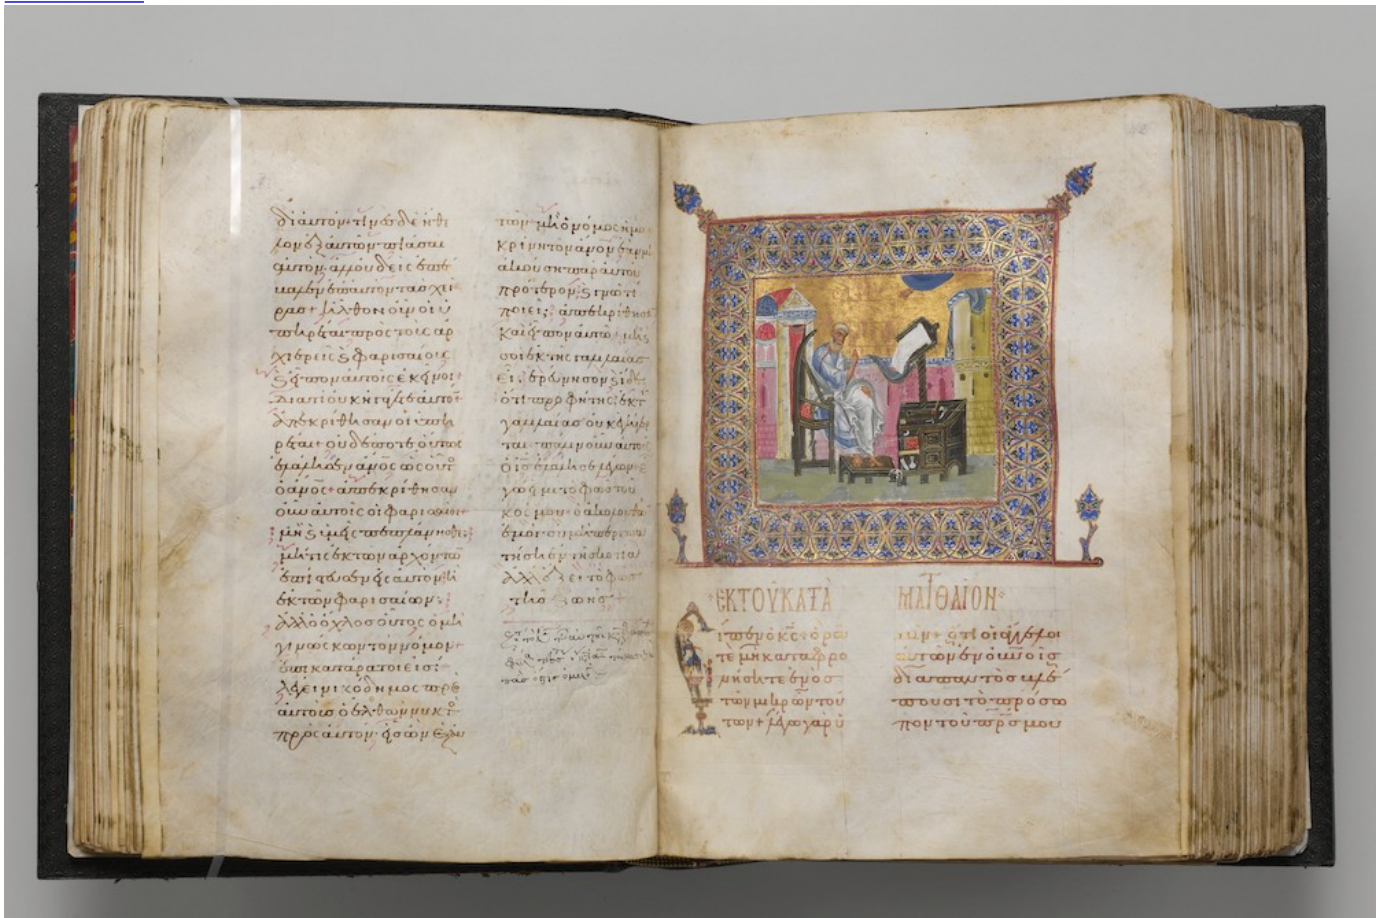 δι αὐτόν· τινὲς δὲ ἤθε
λον ἐξ αὐτῶν πιάσαι
αὐτόν· ἀλλ οὐδεὶς ἐπέ
βαλεν ἐπ αὐτὸν τὰς χεῖ
ρας + ἦλθον οὖν οἱ ὑ
πηρέται πρὸς τοὺς ἀρ
χιερεῖς ϗ φαρισαίους
ϗ εἶπον αὐτοῖς ἐκεῖνοι·
διατί οὐκ ἠγάγετε αὐτόν·
ἀπεκρίθησαν οἱ ὑπη
ρέται· οὐδέποτε οὕτως
ἐλάλησεν ἄνος ὡς οὗτ
ὁ ἄνος + ἀπεκρίθησαν
οὖν αὐτοῖς οἱ φαρισαῖοι·
μὴ ϗ ὑμεῖς πεπλάνησθε;
μή τις ἐκ τῶν ἀρχόντων
ἐπίστευσεν εἰς αὐτὸν ἢ
ἐκ τῶν φαρισαίων;
ἀλλ ὁ ὄχλος οὗτος ὁ μὴ
γινώσκων τὸν νόμον·
ἐπικατάρατοί εἰσι·
λέγει νικόδημος πρὸς
αὐτοὺς ὁ ἐλθὼν νυκτ
πρὸς αὐτόν· εἷς ὢν ἐξ αὐ
τῶν· μὴ ὁ νόμος ἡμῶν
κρίνει τὸν ἄνον ἐὰν μὴ
ἀκούσῃ παρ αὐτοῦ
πρότερον ϗ γνῶ τί
ποιεῖ; ἀπεκρίθησαν
καὶ εἶπον αὐτῷ· μὴ ϗ
σὺ ἐκ τῆς γαλιλαίας
εἶ; ἐρεύνησον ϗ ἴδε
ὅτι προφήτης ἐκ τ
γαλιλαίας οὐκ ἐγήγερ
ται· πάλιν οὖν αὐτοῖς
ὁ ἰς ἐλάλησε λέγων·
ἐγώ εἰμι τὸ φῶς τοῦ
κόσμου· ὁ ἀκολουθῶν
ἐμοὶ· οὐ μὴ περιπα
τήσῃ ἐν τῇ σκοτίᾳ
ἀλλ ἕξει τὸ φῶς
τῆς ζωῆς
ἘΚ ΤΟΥ ΚΑΤΑ ΜΑΤΘΑΙΟΝ
εἶπεν ὁ κς· ὁρᾶ
τε μὴ καταφρο
νήσητε ἑνὸς
τῶν μικρῶν τού
των + λέγω γὰρ ὑ
μῖν· ὅτι οἱ ἄγγελοι
αὐτῶν ἐν οὐνοις
διαπαντὸς βλέ
πουσι τὸ πρόσω
πον τοῦ πρς μου